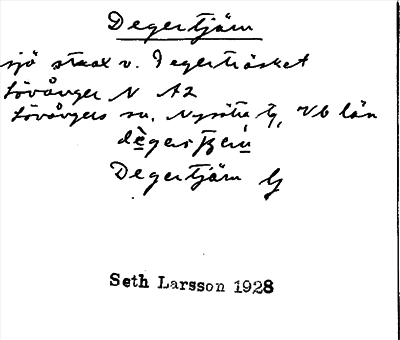 Degertjärn
sjö strax v. Degerträsket
Lövånger N A2
Lövångers sn, Nysätra tg, Vb län
Degertjärn G
Seth Larsson 1928